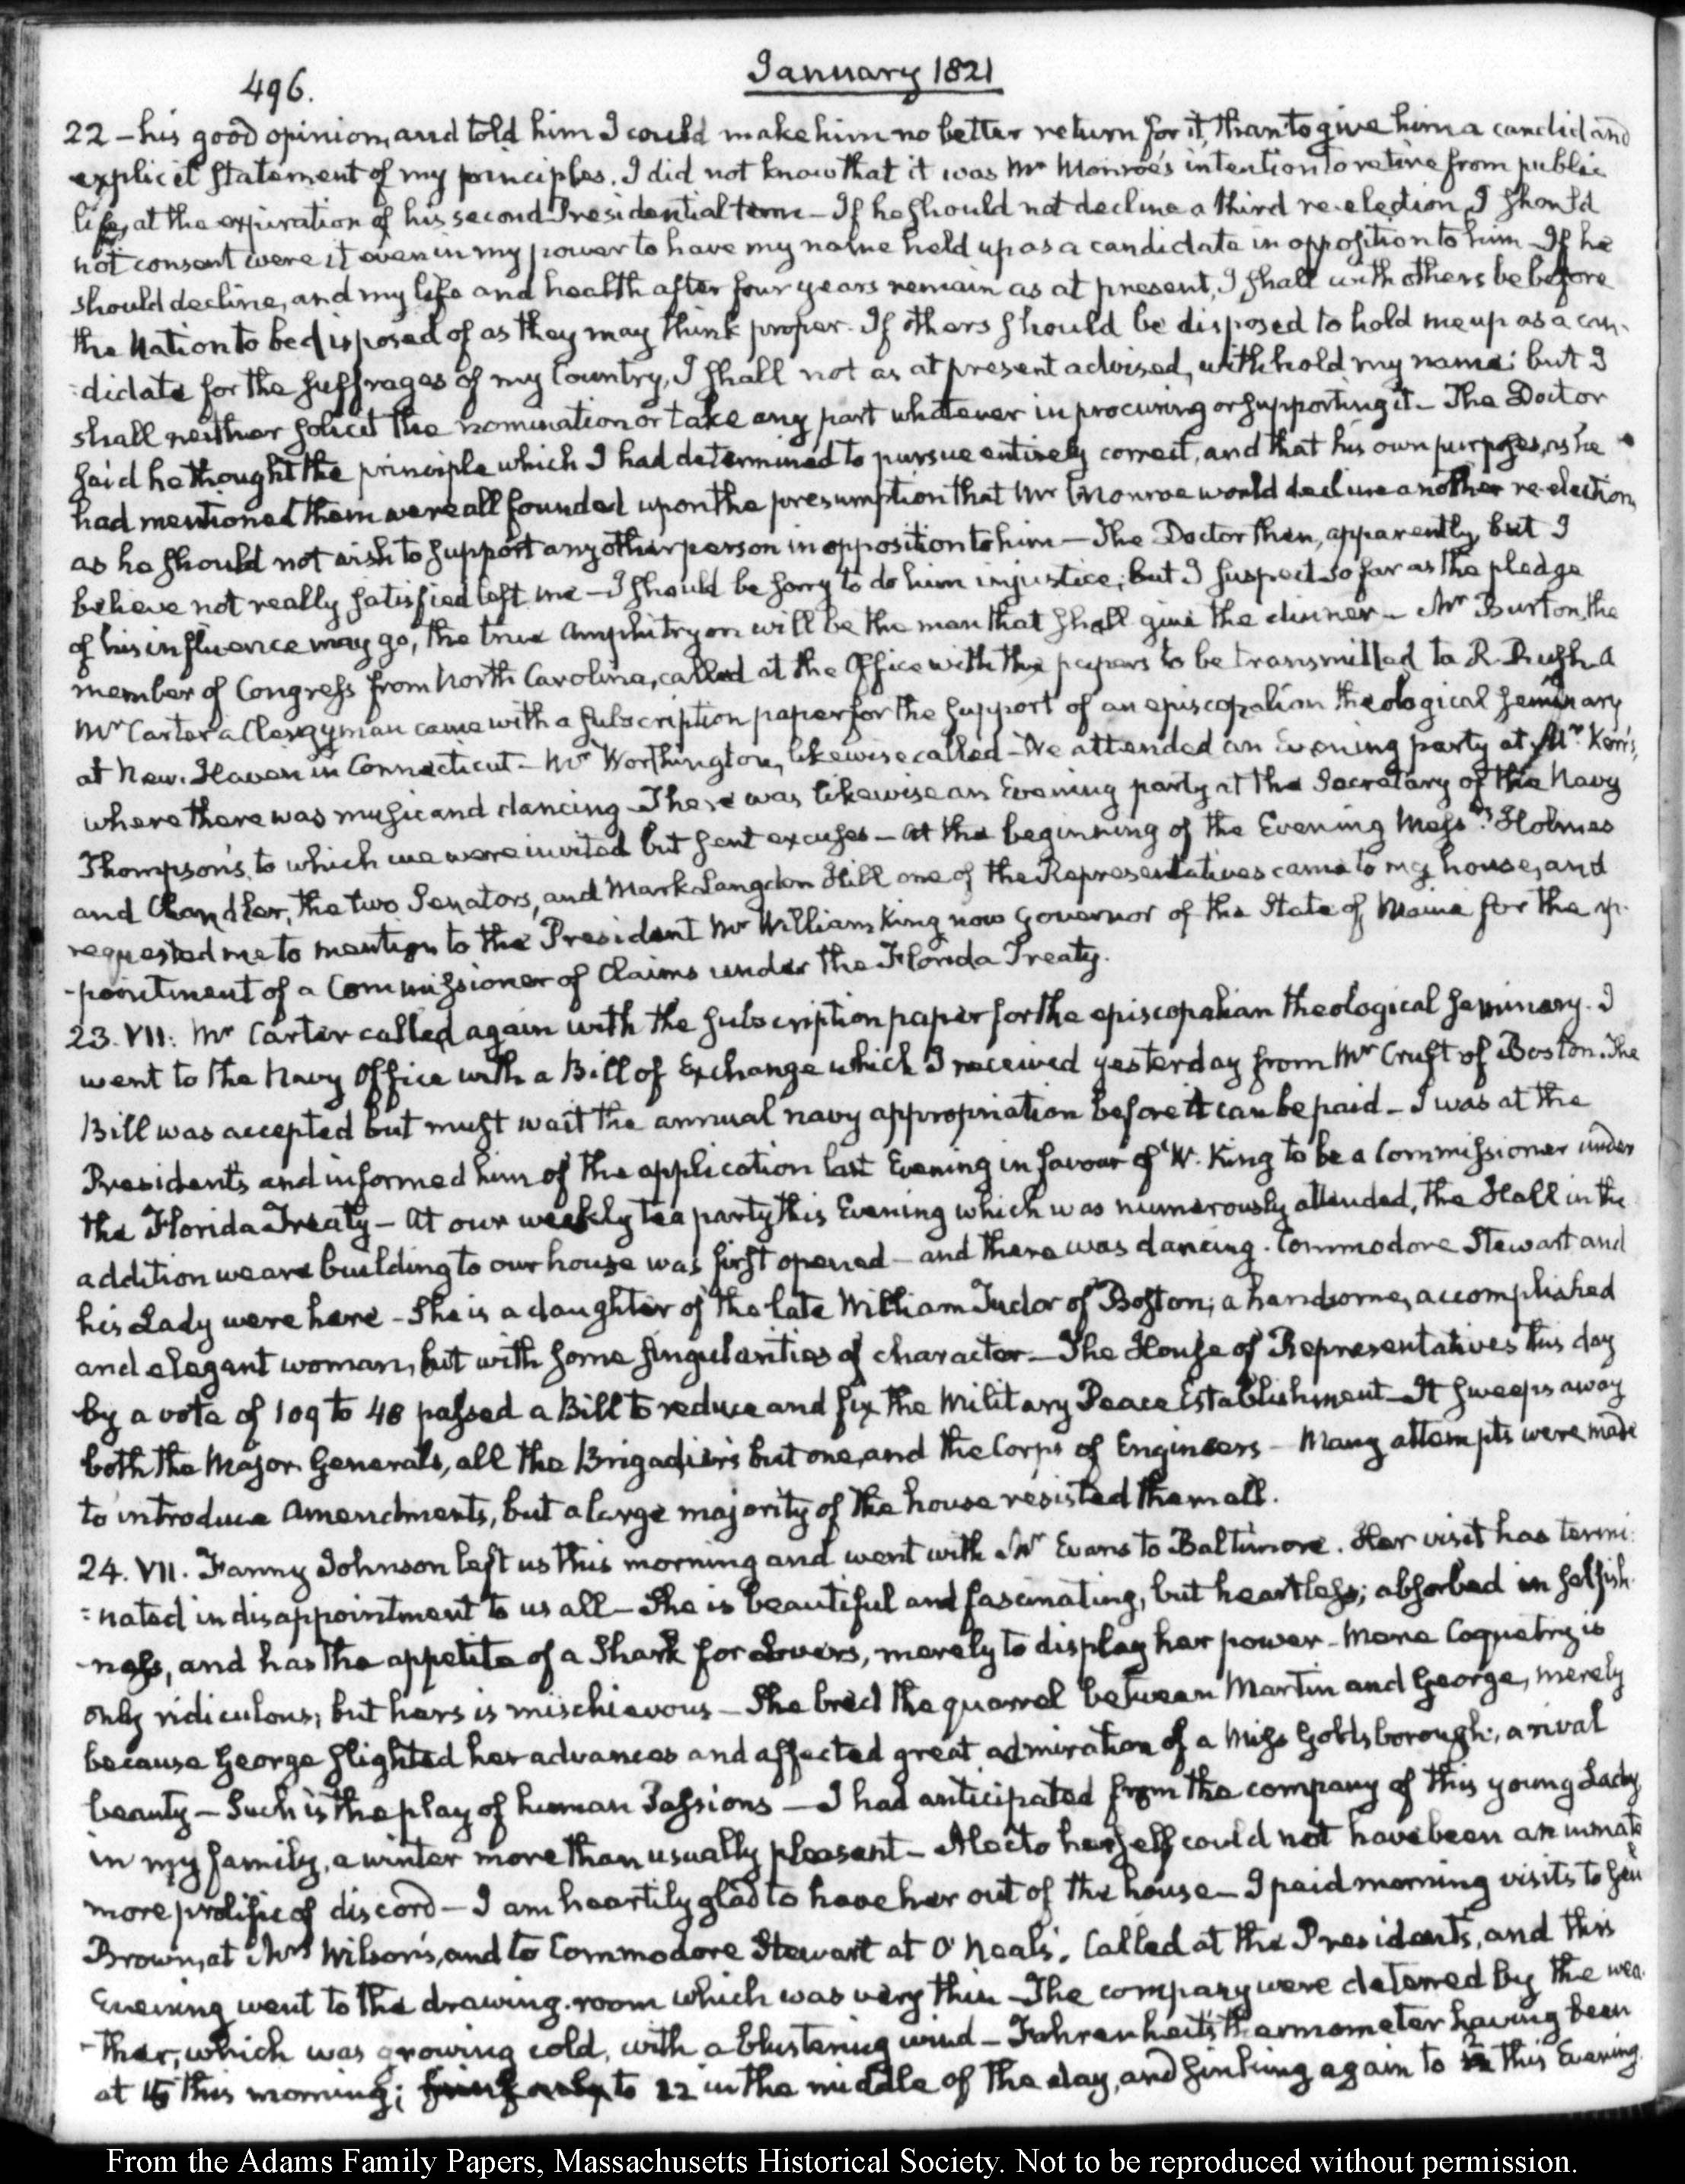 496.
January 1821
22 – his good opinion, and told him I could make him no better return for it, than to give him a candid and
explicit statement of my principles. I did not know that it was Mr Monroe's intention to retire from public
life, at the expiration of his second Presidential term – If he should not decline a third re-election, I should
not consent were it even in my power to have my name held up as a candidate in opposition to him – If he
should decline, and my life and health after four years remain as at present, I shall with others be before
the Nation to be disposed of as they may think proper. If others should be disposed to hold me up as a can-
:didate for the suffrages of my Country, I shall not as at present advised, withhold my name: but I
shall neither solicit the nomination or take any part whatever in procuring or supporting it – The Doctor
said he thought the principle which I had determined to pursue entirely correct, and that his own purposes, as he
had mentioned them were all founded upon the presumption that Mr Monroe would decline another re-election,
as he should not wish to support any other person in opposition to him – The Doctor then, apparently, but I
believe not really satisfied left me – I should be sorry to do him injustice; but I suspect so far as the pledge
of his influence may go, the true Amphitryon will be the man that shall give the dinner – Mr Burton, the
member of Congress from North Carolina, called at the Office with the papers to be transmitted to R. Rush. A
Mr Carter a Clergyman came with a subscription paper for the support of an episcopalian theological seminary
at New-Haven in Connecticut – Mr Worthington, likewise called – We attended an Evening party at Mr Kerr's,
where there was music and dancing – There was likewise an Evening party at the Secretary of the Navy
Thompson's, to which we were invited but sent excuses – At the beginning of the Evening Messrs Holmes
and Chandler, the two Senators, and Mark Langdon Hill one of the Representatives came to my house, and
requested me to mention to the President Mr William King now Governor of the State of Maine for the ap-
-pointment of a Commissioner of Claims under the Florida Treaty.
23. VII: Mr Carter called again with the subscription paper for the episcopalian theological seminary. I
went to the Navy Office with a Bill of Exchange which I received yesterday from Mr Cruft of Boston. The
Bill was accepted but must wait the annual navy appropriation before it can be paid – I was at the
President's and informed him of the application last Evening in favour of W. King to be a Commissioner under
the Florida Treaty – At our weekly tea party this Evening which was numerously attended, the Hall in the
addition we are building to our house was first opened – and there was dancing. Commodore Stewart and
his Lady were here – She is a daughter of the late William Tudor of Boston; a handsome, accomplished
and elegant woman, but with some singularities of character – The House of Representatives this day
by a vote of 109 to 48 passed a Bill to reduce and fix the Military Peace Establishment – It sweeps away
both the Major Generals, all the Brigadiers but one, and the Corps of Engineers – Many attempts were made
to introduce Amendments, but a large majority of the house resisted them all.
24. VII. Fanny Johnson left us this morning and went with Mr Evans to Baltimore. Her visit has termi:
:nated in disappointment to us all – She is beautiful and fascinating, but heartless; absorbed in selfish-
-ness, and has the appetite of a Shark for Lovers, merely to display her power – Mere Coquetry is
only ridiculous; but hers is mischievous – She bred the quarrel between Martin and George, merely
because George slighted her advances and affected great admiration of a Miss Goldsborough; a rival
beauty – Such is the play of human Passions – I had anticipated from the company of this young Lady
in my family, a winter more than usually pleasant – Alecto herself could not have been an inmate
more prolific of discord – I am heartily glad to have her out of the house – I paid morning visits to Genl
Brown, at Mrs Wilson's, and to Commodore Stewart at O'Neal's. Called at the President's, and this
Evening went to the drawing-room which was very thin – The company were deterred by the wea-
-ther, which was growing cold, with a blustering wind – Fahrenheit's thermometer having been
at 15 this morning; to 22 in the middle of the day, and sinking again to 12 this Evening.
From the Adams Family Papers, Massachusetts Historical Society. Not to be reproduced without permission.